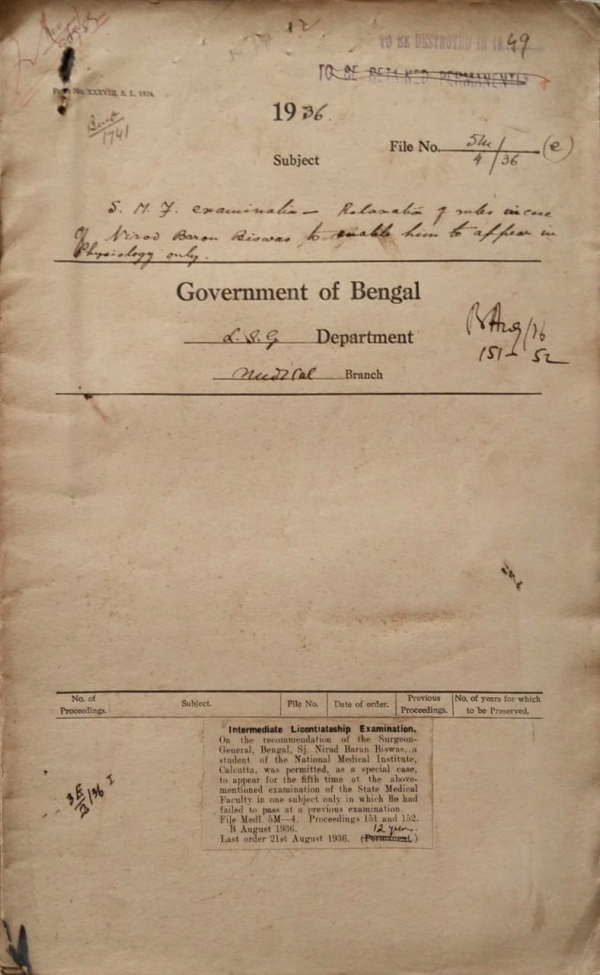 TO BE DESTROYED IN 1949
TO BE RETAINED PERMANENTLY
Form No. XXXVIII. S. L. 1924.
1741
1936.
File No. 5M/4/36 (e)
Subject
S. M. F. examination — Relaxation of rules in case
of Nirod Baron Biswas to enable him to appear in
Physiology only.
Government of Bengal
L.S.G Department
B Aug/36
151-52
Medical Branch
No. of Proceedings. Subject. File No. Date of order. Previous Proceedings. No. of years for which to be Preserved.
Intermediate Licentiateship Examination.
On the recommendation of the Surgeon-
General, Bengal, Sj. Nirad Baran Biswas, a
student of the National Medical Institute,
Calcutta, was permitted, as a special case,
to appear for the fifth time at the above-
mentioned examination of the State Medical
Faculty in one subject only in which he had
failed to pass at a previous examination.
File Medl. 5M—4. Proceedings 151 and 152.
B August 1936. 12 years.
Last order 21st August 1936. (Permanent.)